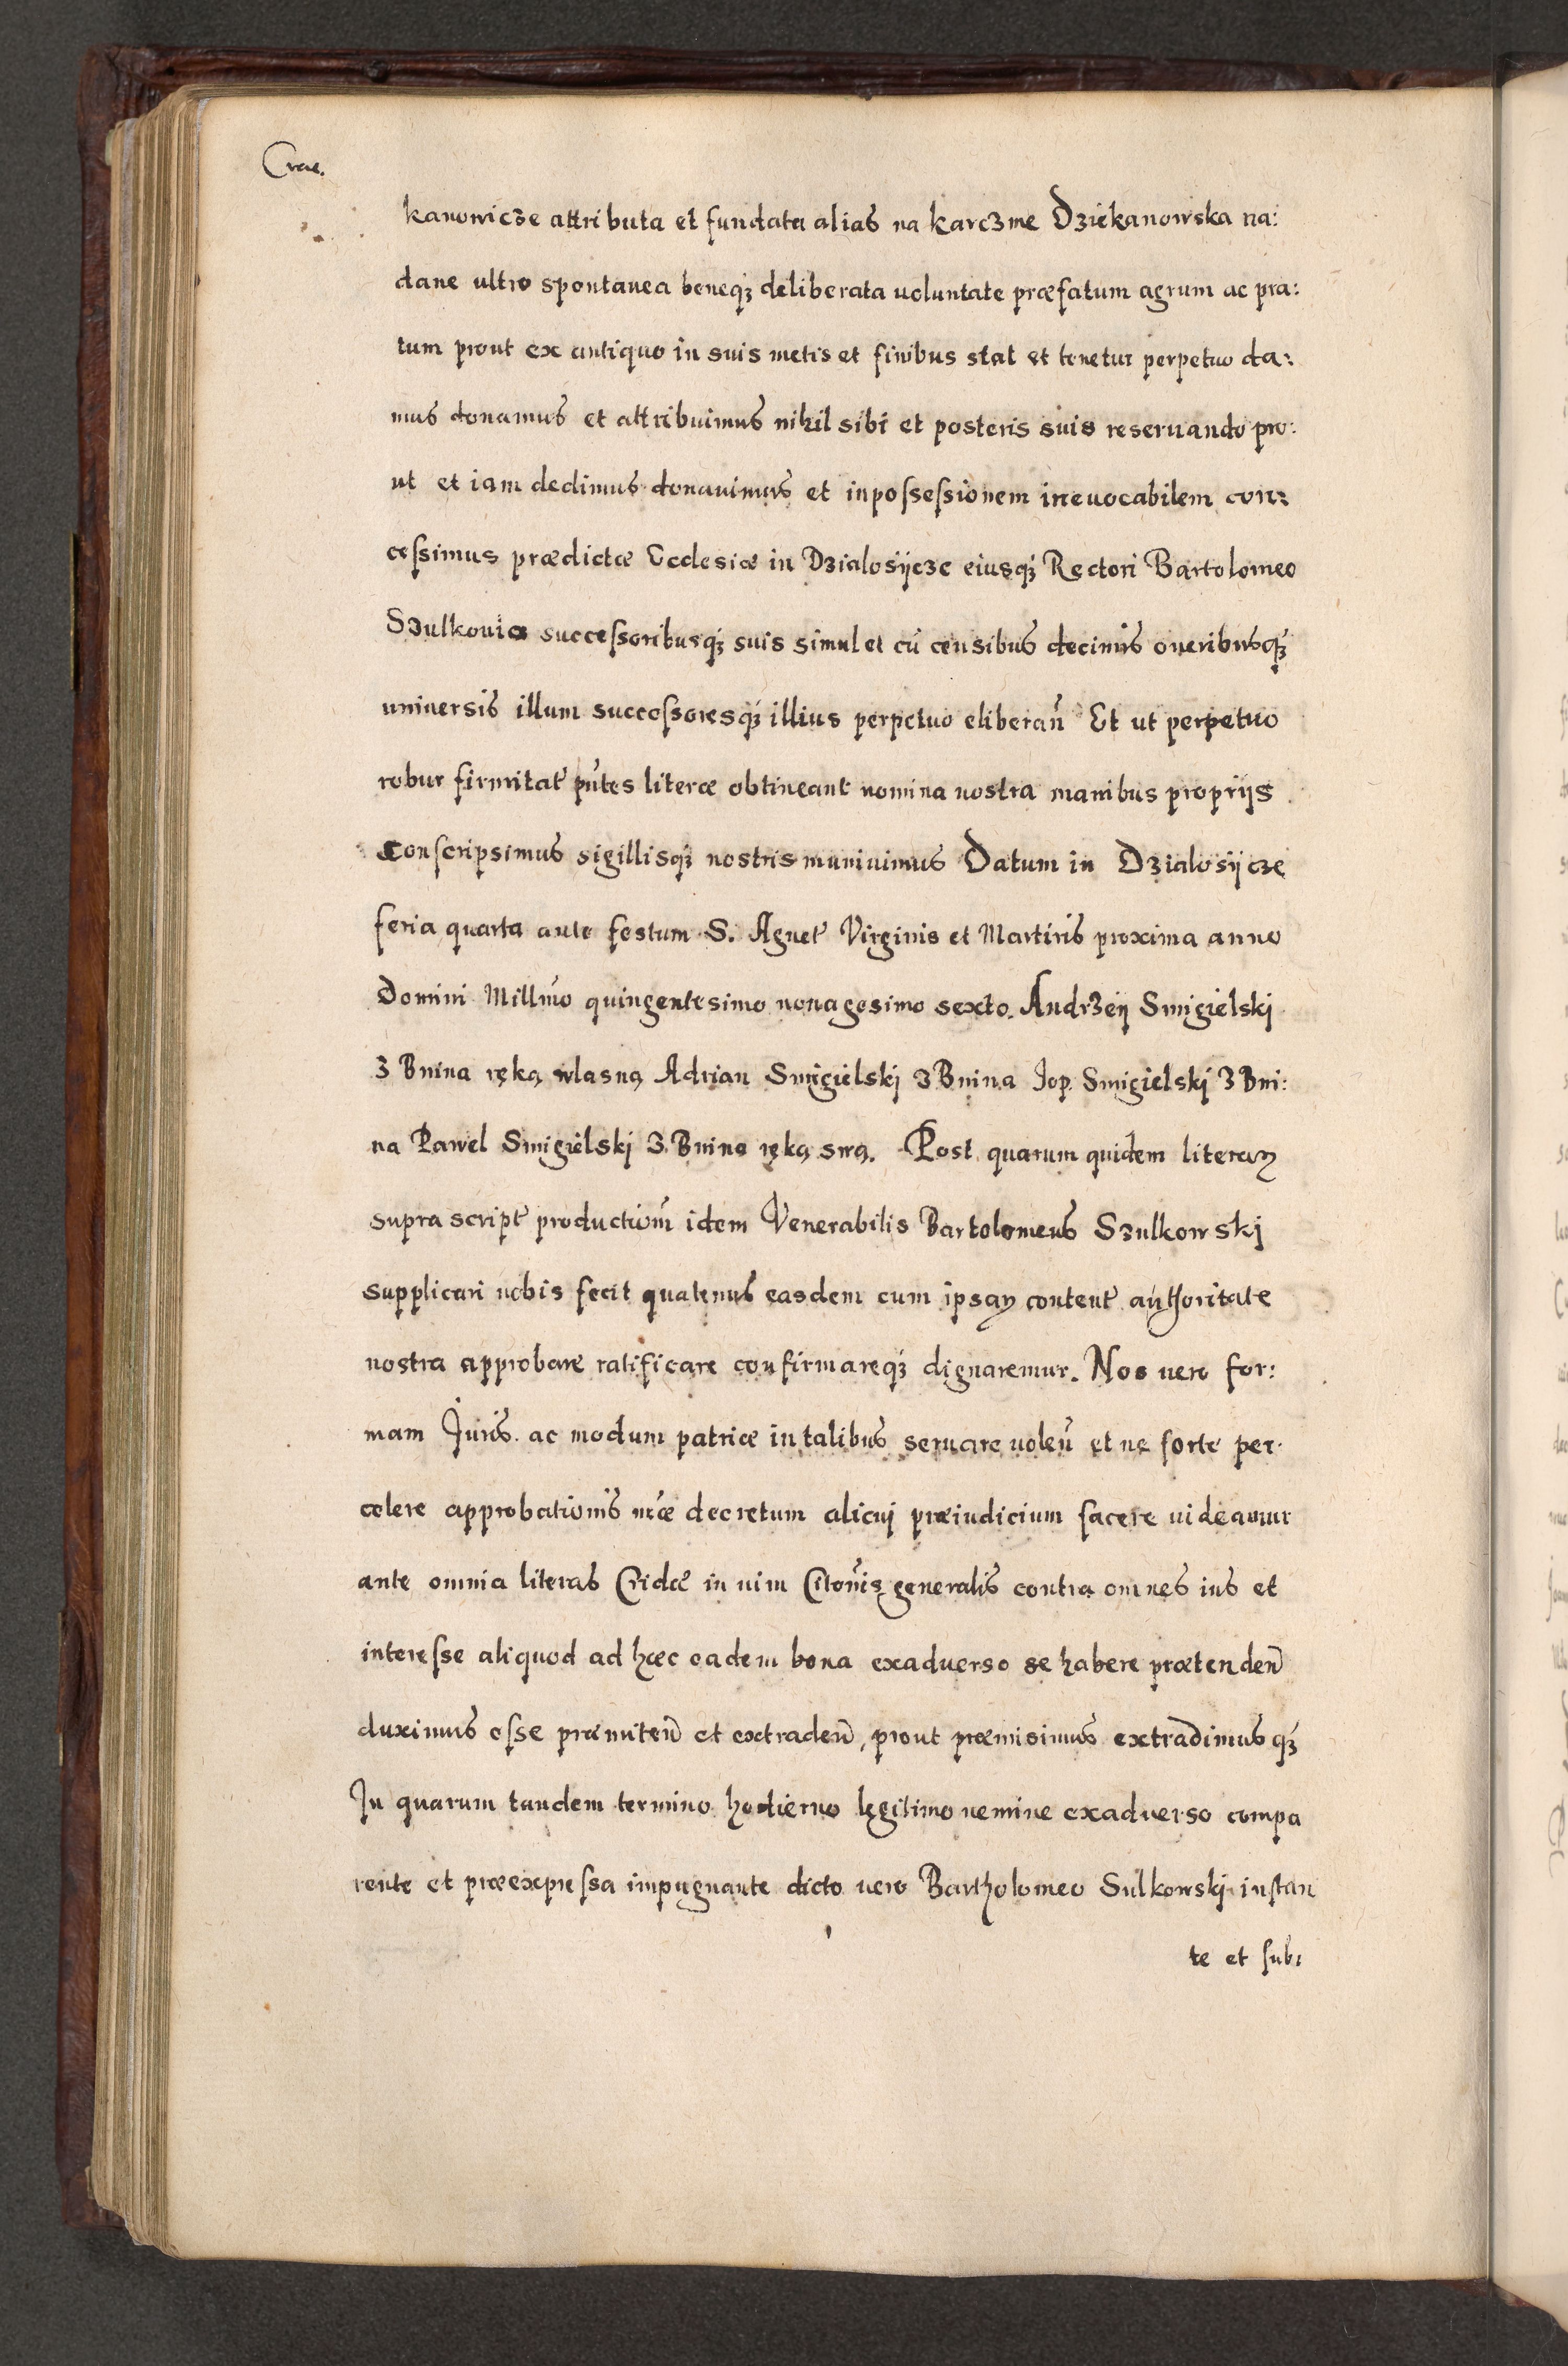 Crac.
kanowicze attributa et fundata alias na karczme Dziekanowska na:
dane ultro spontanea beneq₃ deliberata uoluntate præfatum agrum ac pra:
tum prout ex antiquo in suis metis et finibus stat et tenetur perpetuo da:
mus donamus et attribuimus nihil sibi et posteris suis reseruando pro:
ut et iam dedimus donauimus et in possessionem irreuocabilem con:
cessimus prædictæ Ecclesiæ in Dzialosÿcze eiusq₃ Rectori Bartolomeo
Szulkouio successoribusq₃ suis simul et cū censibus decimis oneribusq₃
uniuersis illum successoresq₃ illius perpetuo eliberan̄ Et ut perpetuo
robur firmitat̄ pn̄tes literæ obtineant nomina nostra manibus proprijs
conscripsimus sigillisq₃ nostris muniuimus Datum in Dzialosÿcze
feria quarta ante festum S. Agnet̄ Virginis et Martiris proxima anno
Domini Millm̄o quingentesimo nonagesimo sexto. Andrzeÿ Smigielskj
z Bnina ręką wlasną Adrian Smigielskj z Bnina Jop Smigielskj z Bni:
na Pawel Smigielskj z Bnina ręką swą. Post quarum quidem literaꝝ
suprascript̄ production̄ idem Venerabilis Bartolomeus Szulkowskj
supplicari nobis fecit quatenus easdem cum ipsaꝝ content̄ authoritate
nostra approbare ratificare confirmareq₃ dignaremur. Nos uero for:
mam Juris ac modum patriæ in talibus seruare uolen̄ et ne forte per
celere approbationis nr̄æ decretum alicuj præiudicium facere uideamur
ante omnia literas Cridæ in uim Citon̄is generalis contra omnes ius et
interesse aliquod ad hæc eadem bona exaduerso se habere prætenden̄
duximus esse præmiten̄ et extraden̄, prout præmisimus extradimusq₃
In quarum tandem termino hodierno legitimo nemine exaduerso compa
rente et præexpressa impugnante dicto uero Bartholomeo Sulkowskj instan
te et sub: